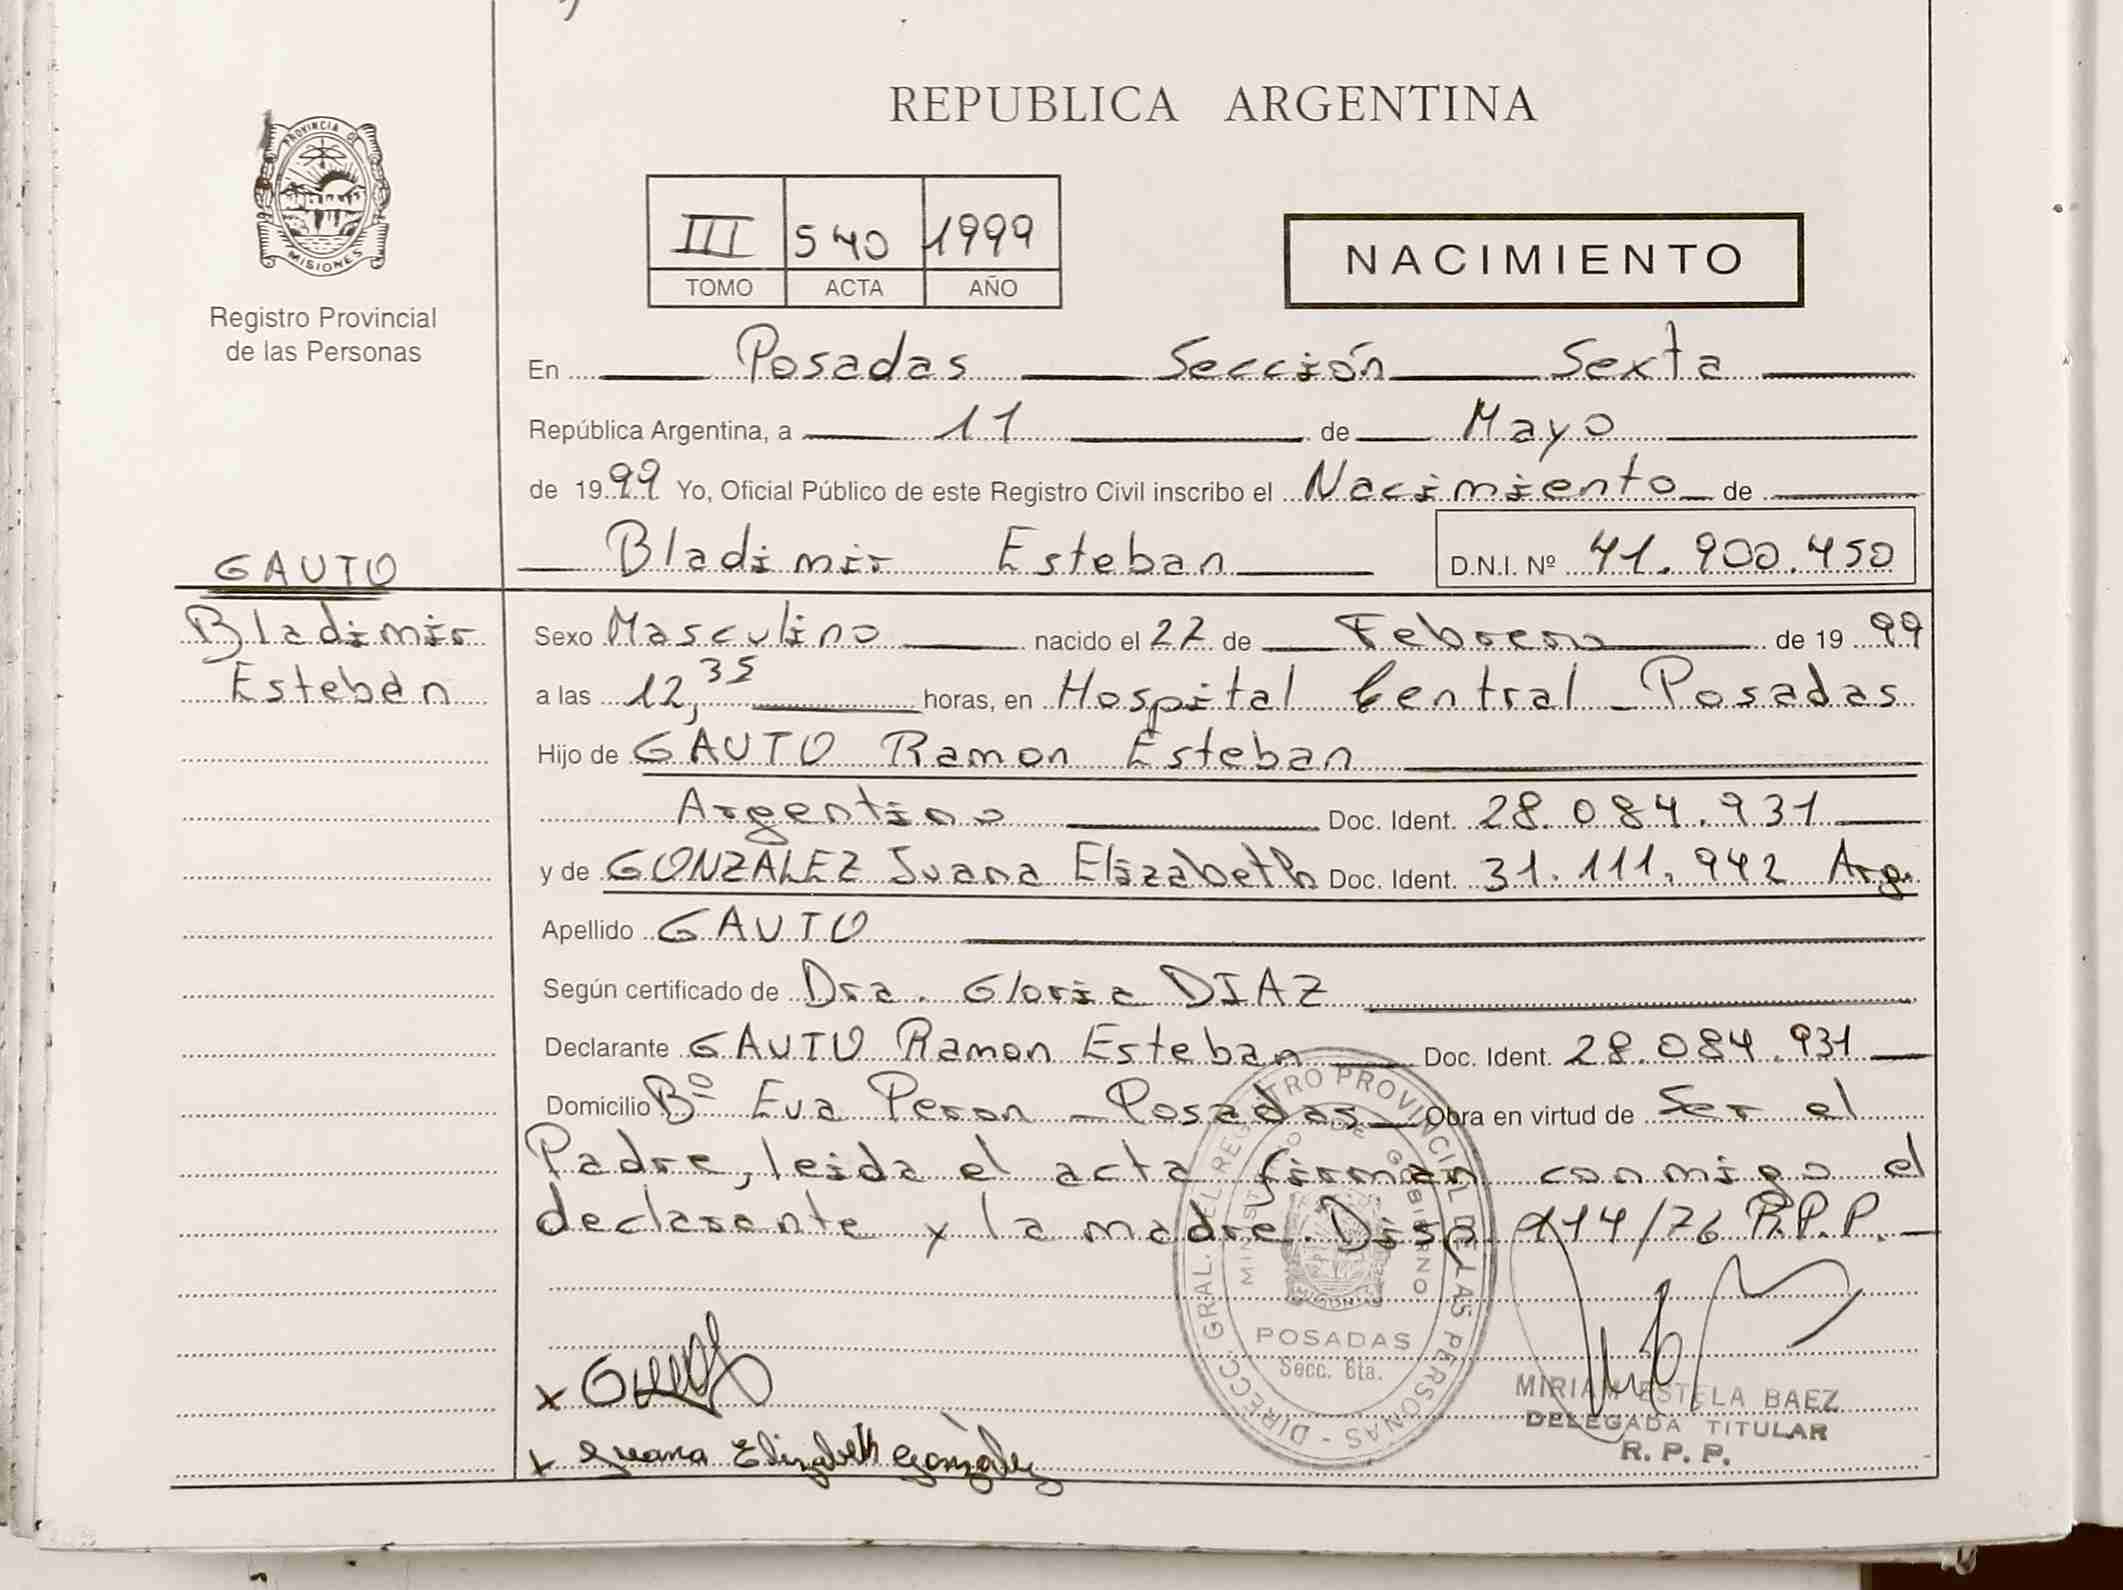 REPUBLICA ARGENTINA
PROVINCIA DE
MISIONES
Registro Provincial
de las Personas
III 540 1999
TOMO ACTA AÑO
NACIMIENTO
En Posadas Sección Sexta
República Argentina, a 11 de Mayo
de 1999 Yo, Oficial Público de este Registro Civil inscribo el Nacimiento de
Bladimir Esteban D.N.I. Nº 41.900.450
GAUTO
Bladimir
Esteban
Sexo Masculino nacido el 22 de Febrero de 1999
a las 12,35 horas, en Hospital Central - Posadas
Hijo de GAUTO Ramon Esteban
Argentino Doc. Ident. 28.084.931
y de GONZALEZ Juana Elizabeth Doc. Ident. 31.111.942 Arg.
Apellido GAUTO
Según certificado de Dra. Gloria DIAZ
Declarante GAUTO Ramon Esteban Doc. Ident. 28.084.931
Domicilio Bº Eva Peron - Posadas Obra en virtud de Ser el
Padre, leida el acta firman conmigo el
declarante y la madre. Disp. 114/76 R.P.P.
DIRECC. GRAL. DEL REGISTRO PROVINCIAL DE LAS PERSONAS
MINISTERIO DE GOBIERNO
MISIONES
POSADAS
Secc. 6ta.
MIRIAM ESTELA BAEZ
DELEGADA TITULAR
R. P. P.
x
x Juana Elizabeth González